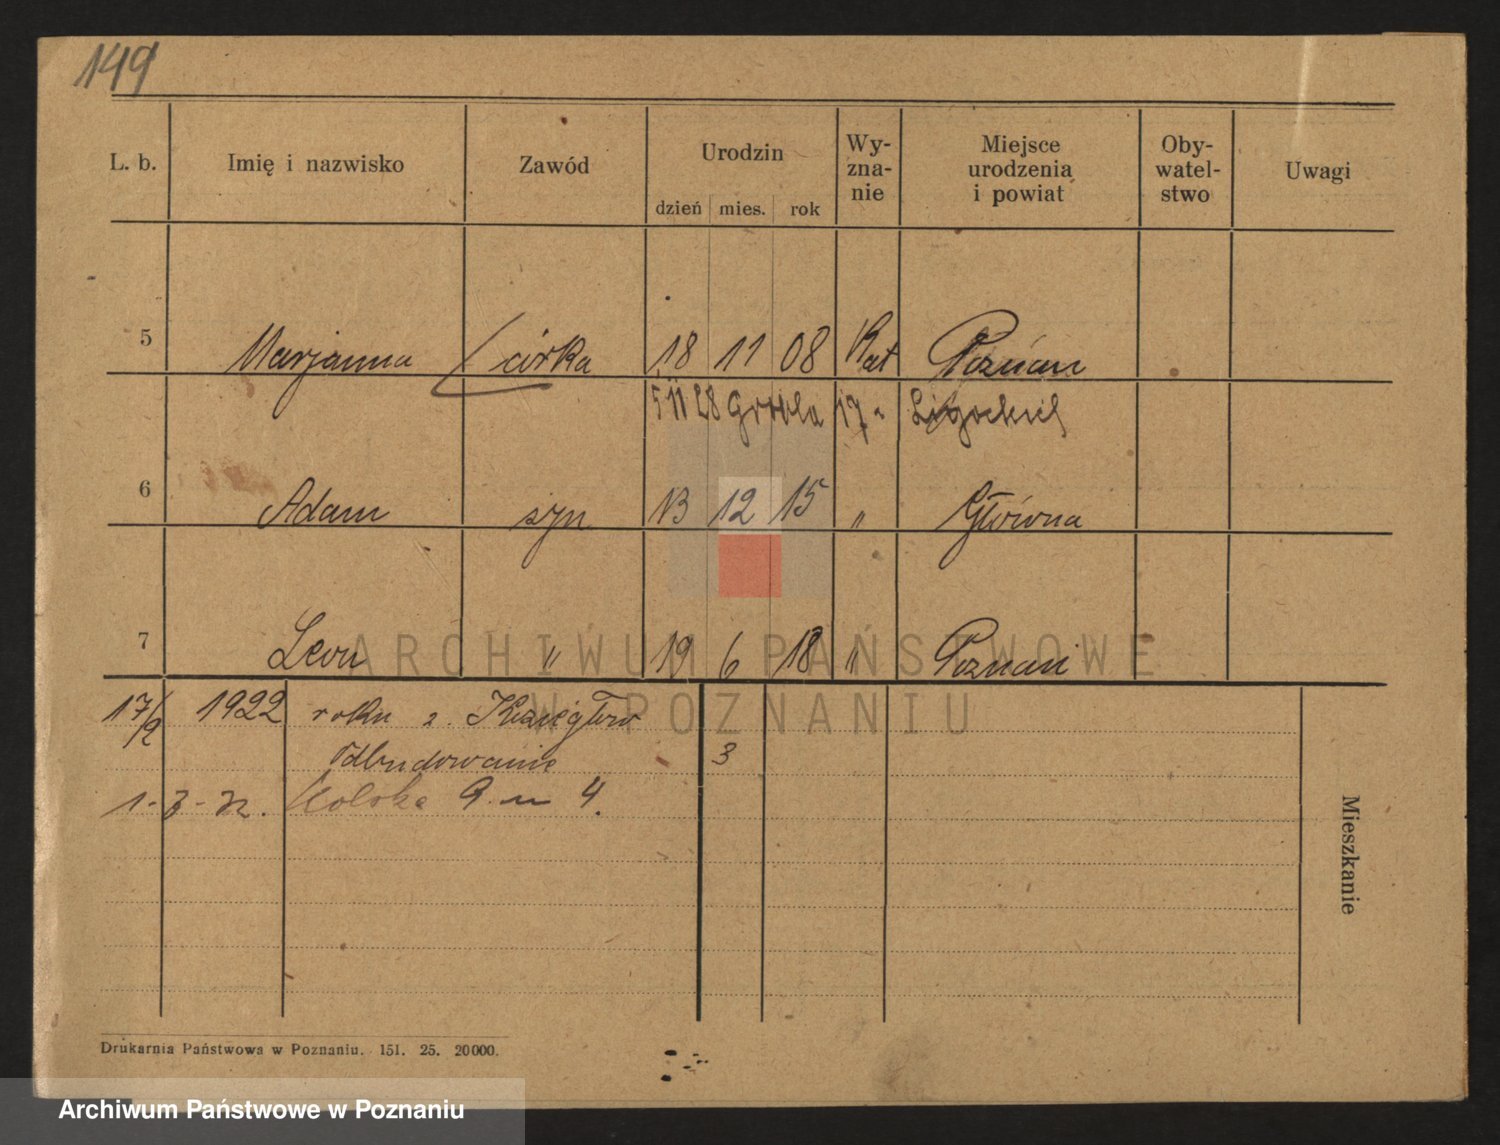 149
L. b. Imię i nazwisko Zawód Urodzin Wy-zna-nie Miejsce urodzenia i powiat Oby-watel-stwo Uwagi
dzień mies. rok
5 Marjanna córka 18 11 08 Kat Poznań
5 11 28 Grobla 17 Ligockich
6 Adam syn 13 12 15 " Główna
7 Leon " 19 6 18 " Poznań
ARCHIWUM PAŃSTWOWE
W POZNANIU
17/2 1922 roku z
Odbudowanie 3
1-3-32. 9 m 4.
Mieszkanie
Drukarnia Państwowa w Poznaniu. 151. 25. 20000.
Archiwum Państwowe w Poznaniu